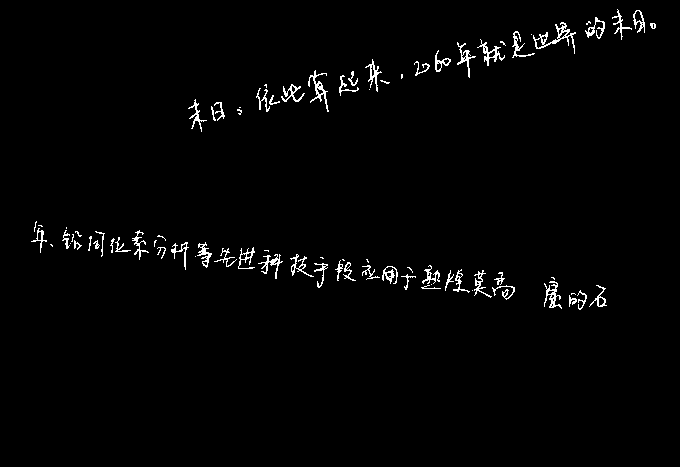 末日。依此算起来，2060年就是世界的末日。
年、铅同位素分析等先进科技手段应用于敦煌莫高窟的石